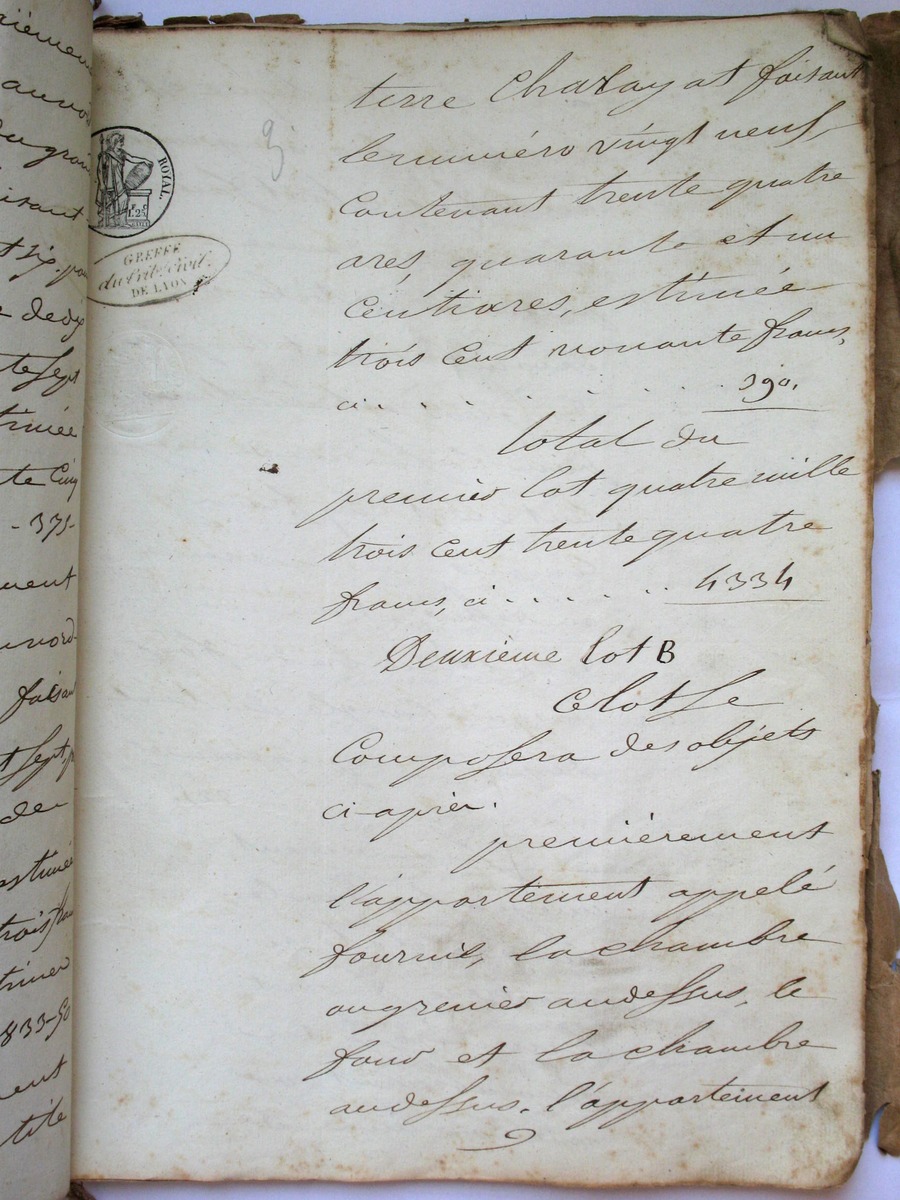 ROYAL.
1F.25C
GREFFE
du trib. Civil.
DE LYON
3
terre Chalayat faisant
le numéro vingt neuf
Contenant trente quatre
ares, quarante et un
Centiares, estimée
trois Cent nonante francs,
ci . . . . . . . . . . 390.
total du
premier lot quatre mille
trois Cent trente quatre
francs, ci . . . . . . 4334
Deuxième lot B
Ce lot se
Composera des objets
ci-après.
premièrement
l'appartement appelé
fournil, la chambre
ou grenier au dessus, le
four et la chambre
au dessus. l'appartement
auvoi
du gran
isant
t six. pou
te sept
timée
te Cinq
- 375 -
ment
nord-
faisant
t sept, p
de
estimée
trois fran
833-50
ent